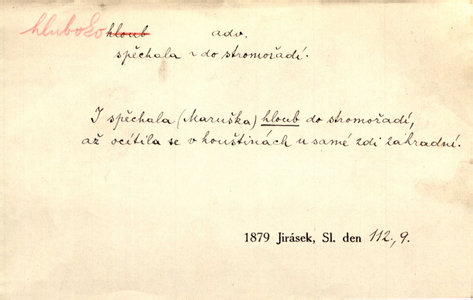 hluboko hloub adv.
spěchala ~ do stromořadí.
I spěchala (Maruška) hloub do stromořadí,
až ocítila se v houštinách u samé zdi záhradní.
1879 Jirásek, Sl. den 112, 9.